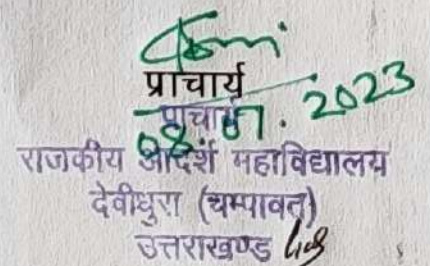 प्राचार्य
प्राचार्य
08.07.2023
राजकीय आदर्श महाविद्यालय
देवीधुरा (चम्पावत)
उत्तराखण्ड